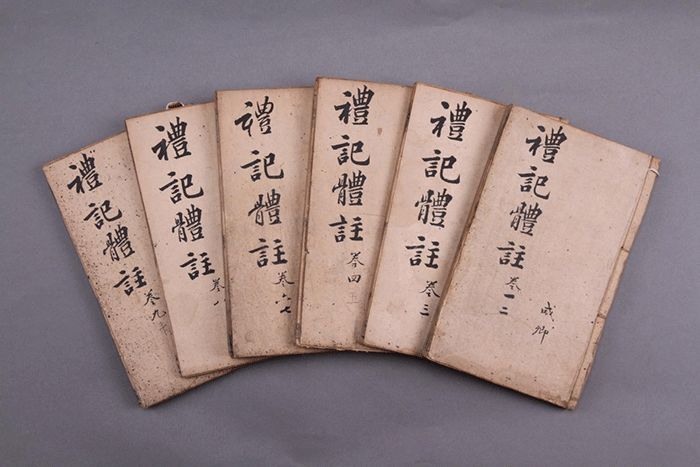 禮記體註 卷一二
卿
禮記體註 卷三
禮記體註 卷四五
禮記體註 卷六七
禮記體註 卷
禮記體註 卷九